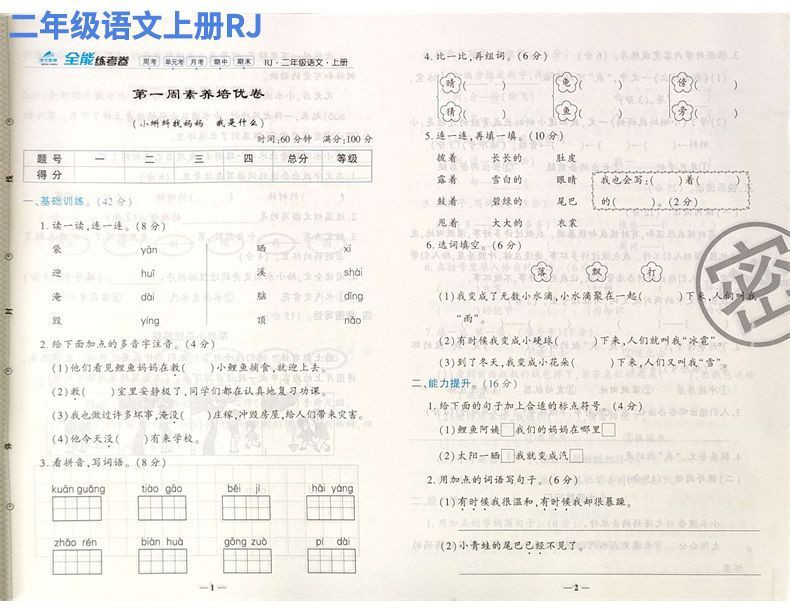 二年级语文上册RJ
全能练考卷 周考 单元考 月考 期中 期末 RJ·二年级语文·上册
第一周素养培优卷
(小蝌蚪找妈妈 我是什么)
时间:60分钟 满分:100分
题号 一 二 三 四 总分 等级
得分
一、基础训练。(42分)
1.读一读,连一连。(8分)
袋 yān 晒 xī
迎 huǐ 溪 shài
淹 dài 脑 dǐng
毁 yíng 顶 nǎo
2.给下面加点的多音字注音。(4分)
(1)他们看见鲤鱼妈妈在教( )小鲤鱼捕食,就迎上去。
(2)教( )室里安静极了,同学们都在认真地复习功课。
(3)我也做过许多坏事,淹没( )庄稼,冲毁房屋,给人们带来灾害。
(4)他今天没( )有来学校。
3.看拼音,写词语。(8分)
kuān guǎng tiào gāo běi jí hǎi yáng
zhǎo rén biàn huà gōng zuò pí dài
—1—
4.比一比,再组词。(6分)
晴( ) 龟( ) 傍( )
猜( ) 鱼( ) 旁( )
5.连一连,再填一填。(10分)
披着 长长的 肚皮
露着 雪白的 眼睛
鼓着 碧绿的 尾巴
甩着 大大的 衣裳
我也会写:( )着( )
的( )。(2分)
6.选词填空。(6分)
落 飘 打
(1)我变成了无数小水滴,小水滴聚在一起( )下来,人们叫我
“雨”。
(2)有时候我变成小硬球( )下来,人们就叫我“冰雹”。
(3)到了冬天,我变成小花朵( )下来,人们又叫我“雪”。
二、能力提升。(16分)
1.给下面的句子加上合适的标点符号。(4分)
(1)鲤鱼阿姨□我们的妈妈在哪里□
(2)太阳一晒□我就变成汽□
2.用加点的词语写句子。(6分)
(1)有时候我很温和,有时候我却很暴躁。
(2)小青蛙的尾巴已经不见了。
—2—
密
线
封